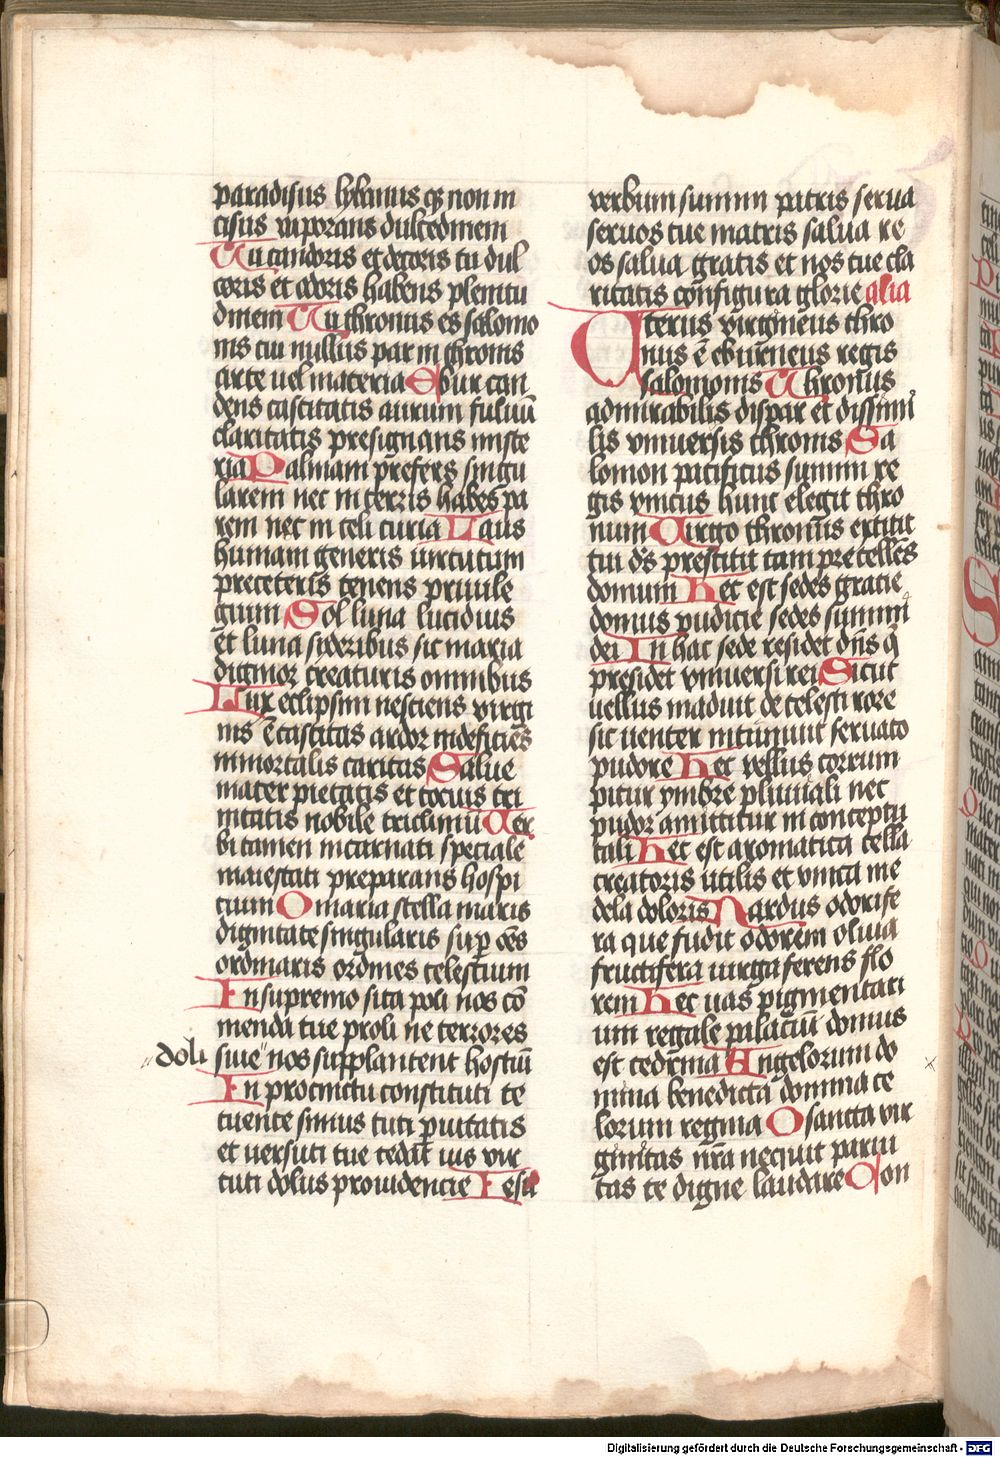 paradisus lybanus qz non in
cisus vaporans dulcedinem
Tu candoris et decoris tu dul
coris et odoris habens plenitu
dinem Tu thronus es salomo
nis cui nullus par in thronis
arte uel materia Ebur can
dens castitatis aurum fuluū
claritatis presignans miste
ria Palmam p̄fers singu
larem nec in terris habes pa
rem nec in celi curia Laus
humani generis uirtutum
pre ceteris tenens priuile
gium Sol luna lucidius
et luna sideribus sic maria
dignior creaturis omnibus
Lux eclipsim nesciens virgi
nis ē castitas ardor indeficiēs
inmortalis caritas Salue
mater pietatis et tocius tri
nitatis nobile tricliniū Uer
bi tamen incarnati speciale
maiestati preparans hospi
cium O maria stella maris
dignitate singularis sup̱ oēs
ordinaris ordines celestium
In supremo sita poli nos cō
menda tue proli ne terrores
doli siue nos supplantent hostiū
In procinctu constituti te
tuente simus tuti p̱uicatis
et uersuti tue cedat uis uir
tuti dolus prouidencie Iesu
verbum summi patris serua
seruos tue matris salua re
os salua gratis et nos tue cla
ritatis configura glorie alia
Uterus virgineus thro
nus ē eburneus regis
salomonis Thronus
admirabilis dispar et dissimi
lis vniuersis thronis Sa
lomon pacificus summi re
gis vnicus hunc elegit thro
num Uirgo thronus extitit
cui d̄s prestitit tam precellēs
domum Hec est sedes gratie
domus pudicie sedes summi
dei In hac sede residet dn̄s q̄
presidet vniuersi rei Sicut
uellus maduit de celesti rore
sic uenter intumuit seruato
pudore Hec vellus corrum
pitur ymbre pluuiali nec
pudor amittitur in conceptu
tali Hec est aromatica cella
creatoris utilis et vnica me
dela doloris Nardus odorife
ra que fudit odorem oliua
fructifera uirga ferens flo
rem Hec uas pigmentari
um regale palaciū domus
est cedrina Angelorum do
mina benedicta domina ce
lorum regina O sancta vir
ginitas nr̄a nequit parui
tas te digne laudare Con
Digitalisierung gefördert durch die Deutsche Forschungsgemeinschaft - DFG